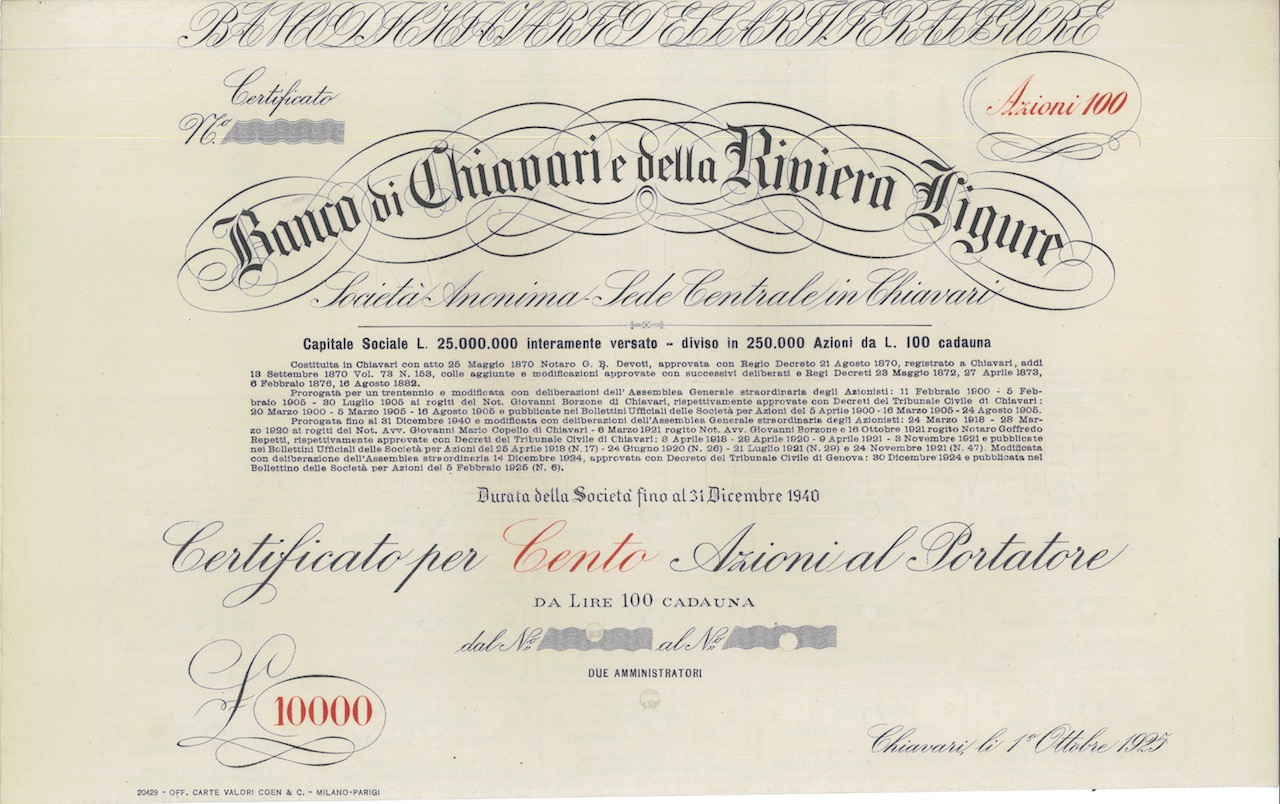 BANCO DI CHIAVARI E DELLA RIVIERA LIGURE
Certificato
N.º
Azioni 100
Banco di Chiavari e della Riviera Ligure
Società Anonima - Sede Centrale in Chiavari
Capitale Sociale L. 25.000.000 interamente versato - diviso in 250.000 Azioni da L. 100 cadauna
Costituita in Chiavari con atto 25 Maggio 1870 Notaro G. B. Devoti, approvata con Regio Decreto 21 Agosto 1870, registrato a Chiavari, addì
13 Settembre 1870 Vol. 73 N. 153, colle aggiunte e modificazioni approvate con successivi deliberati e Regi Decreti 23 Maggio 1872, 27 Aprile 1873,
6 Febbraio 1876, 16 Agosto 1882.
Prorogata per un trentennio e modificata con deliberazioni dell'Assemblea Generale straordinaria degli Azionisti: 11 Febbraio 1900 - 5 Feb-
braio 1905 - 30 Luglio 1905 ai rogiti del Not. Giovanni Borzone di Chiavari, rispettivamente approvate con Decreti del Tribunale Civile di Chiavari:
20 Marzo 1900 - 5 Marzo 1905 - 16 Agosto 1905 e pubblicate nei Bollettini Ufficiali delle Società per Azioni del 5 Aprile 1900 - 16 Marzo 1905 - 24 Agosto 1905.
Prorogata fino al 31 Dicembre 1940 e modificata con deliberazioni dell'Assemblea Generale straordinaria degli Azionisti: 24 Marzo 1918 - 28 Mar-
zo 1920 ai rogiti del Not. Avv. Giovanni Mario Copello di Chiavari - 6 Marzo 1921 rogito Not. Avv. Giovanni Borzone e 16 Ottobre 1921 rogito Notaro Goffredo
Repetti, rispettivamente approvate con Decreti del Tribunale Civile di Chiavari: 8 Aprile 1918 - 29 Aprile 1920 - 9 Aprile 1921 - 3 Novembre 1921 e pubblicate
nei Bollettini Ufficiali delle Società per Azioni del 25 Aprile 1918 (N. 17) - 24 Giugno 1920 (N. 26) - 21 Luglio 1921 (N. 29) e 24 Novembre 1921 (N. 47). Modificata
con deliberazione dell'Assemblea straordinaria 14 Dicembre 1924, approvata con Decreto del Tribunale Civile di Genova: 30 Dicembre 1924 e pubblicata nel
Bollettino delle Società per Azioni del 5 Febbraio 1925 (N. 6).
Durata della Società fino al 31 Dicembre 1940
Certificato per Cento Azioni al Portatore
DA LIRE 100 CADAUNA
dal N.º al N.º
DUE AMMINISTRATORI
£ 10000
Chiavari, li 1º Ottobre 1925
20429 - OFF. CARTE VALORI COEN & C. - MILANO-PARIGI